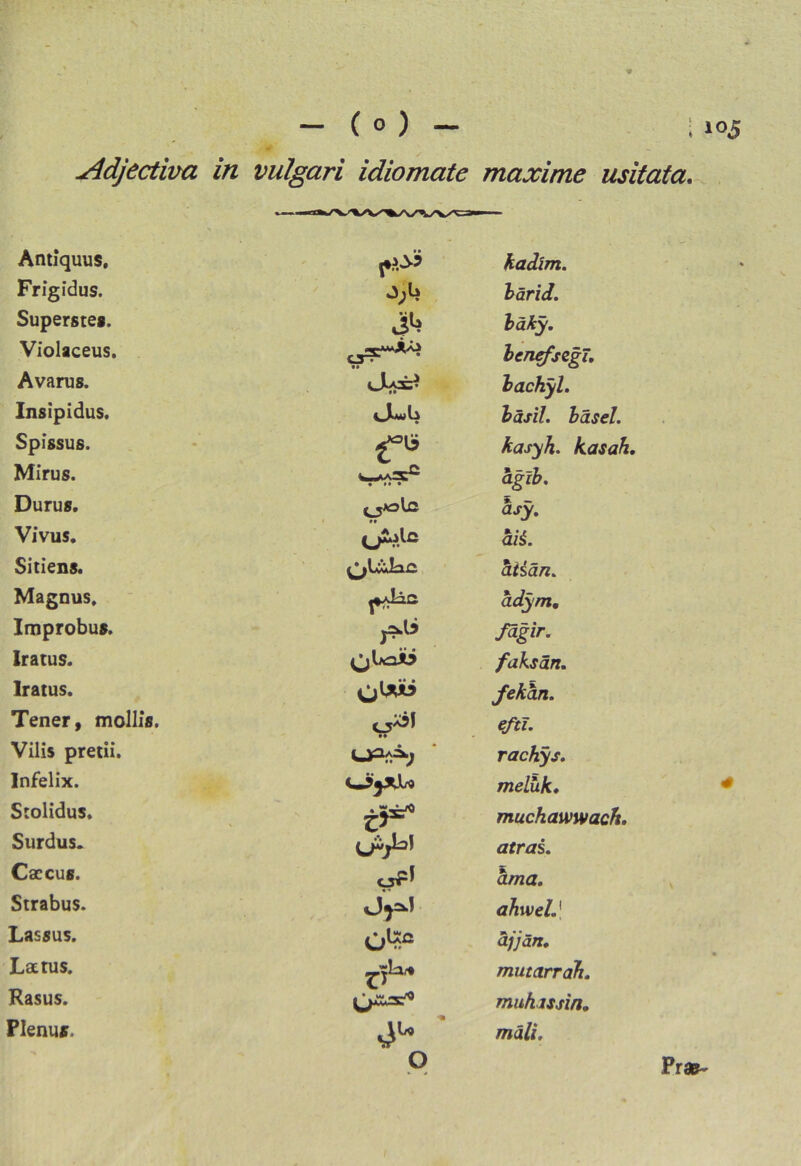 — ( o ) — 105
Adjectiva in vulgari idiomate maxime usitata.
Antiquus. قديم kadim.
Frigidus. بارد bārid.
Superstes. باقي bāky.
Violaceus. بنفسجي benefsegī.
Avarus. بخيل bachȳl.
Insipidus. باسل bāsil. bāsel.
Spissus. قاصح kasyh. kasah.
Mirus. عجيب agīb.
Durus. عاصي āsȳ.
Vivus. عايش āiś.
Sitiens. عطشان atśān.
Magnus. عظيم adȳm.
Improbus. فاجر fāgir.
Iratus. فقصان faksān.
Iratus. فقعان fekān.
Tener, mollis. افتي eftī.
Vilis pretii. رخيص rachȳs.
Infelix. ملعوق melūk.
Stolidus. مخوخ muchawwach.
Surdus. اطرش atraś.
Cæcus. اعمي āma.
Strabus. احول ahwel.
Lassus. عيان ājjān.
Lætus. مطرح mutarrah.
Rasus. محشن muhassin.
Plenus. مالي māli.
O Præ-